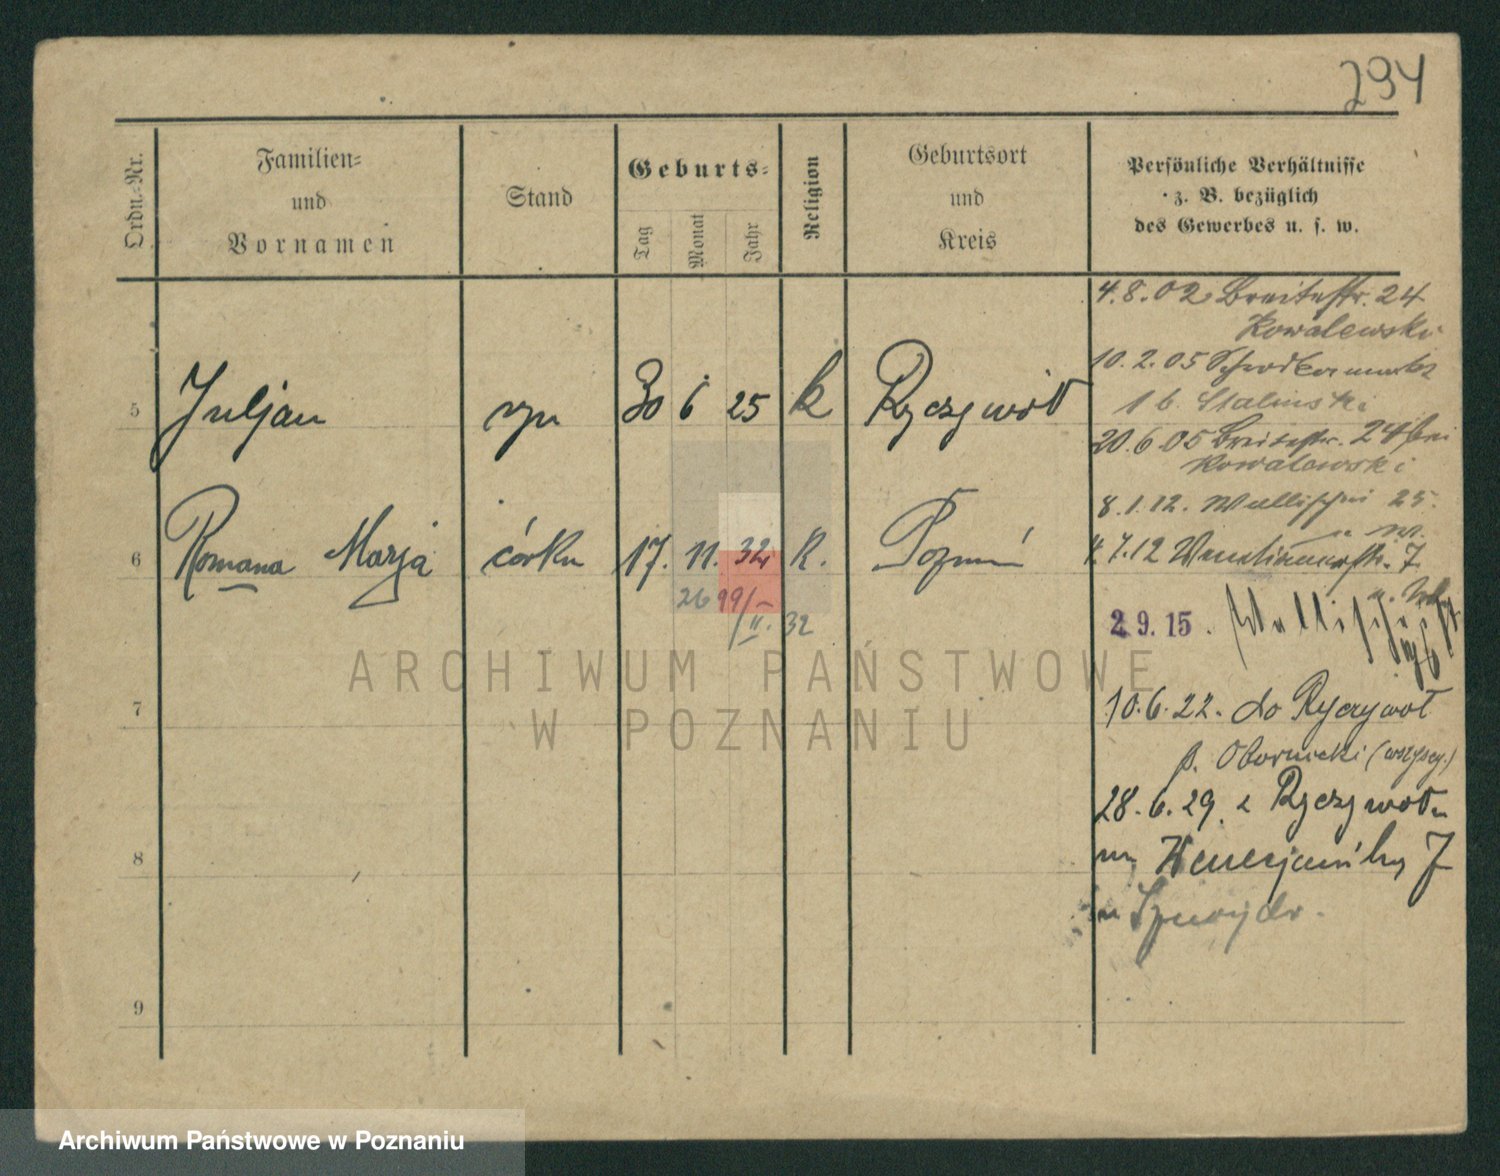 294
Ordn.=Nr.
Familien=
und
Vornamen
Stand
Geburts=
Tag
Monat
Jahr
Religion
Geburtsort
und
Kreis
Persönliche Verhältnisse
z. B. bezüglich
des Gewerbes u. s. w.
4.8.02 Breitestr. 24
Kowalewski
10.2.05
16
20.6.05 Breitestr. 24 bei
Kowalewski
8.1.12. Wallischei 25.
4.7.12 7
2 9. 15. Wallischei
10.6.22. do Ryczywół
p. Obornicki (wszyscy.)
28.6.29. z Ryczywołu
na Wenecjańską 7
u
5 Juljan syn 30 6 25 k Ryczywół
6 Romana Marja córka 17. 11. 32 k. Poznań
26 99/–
II. 32
7
8
9
ARCHIWUM PAŃSTWOWE
W POZNANIU
Archiwum Państwowe w Poznaniu